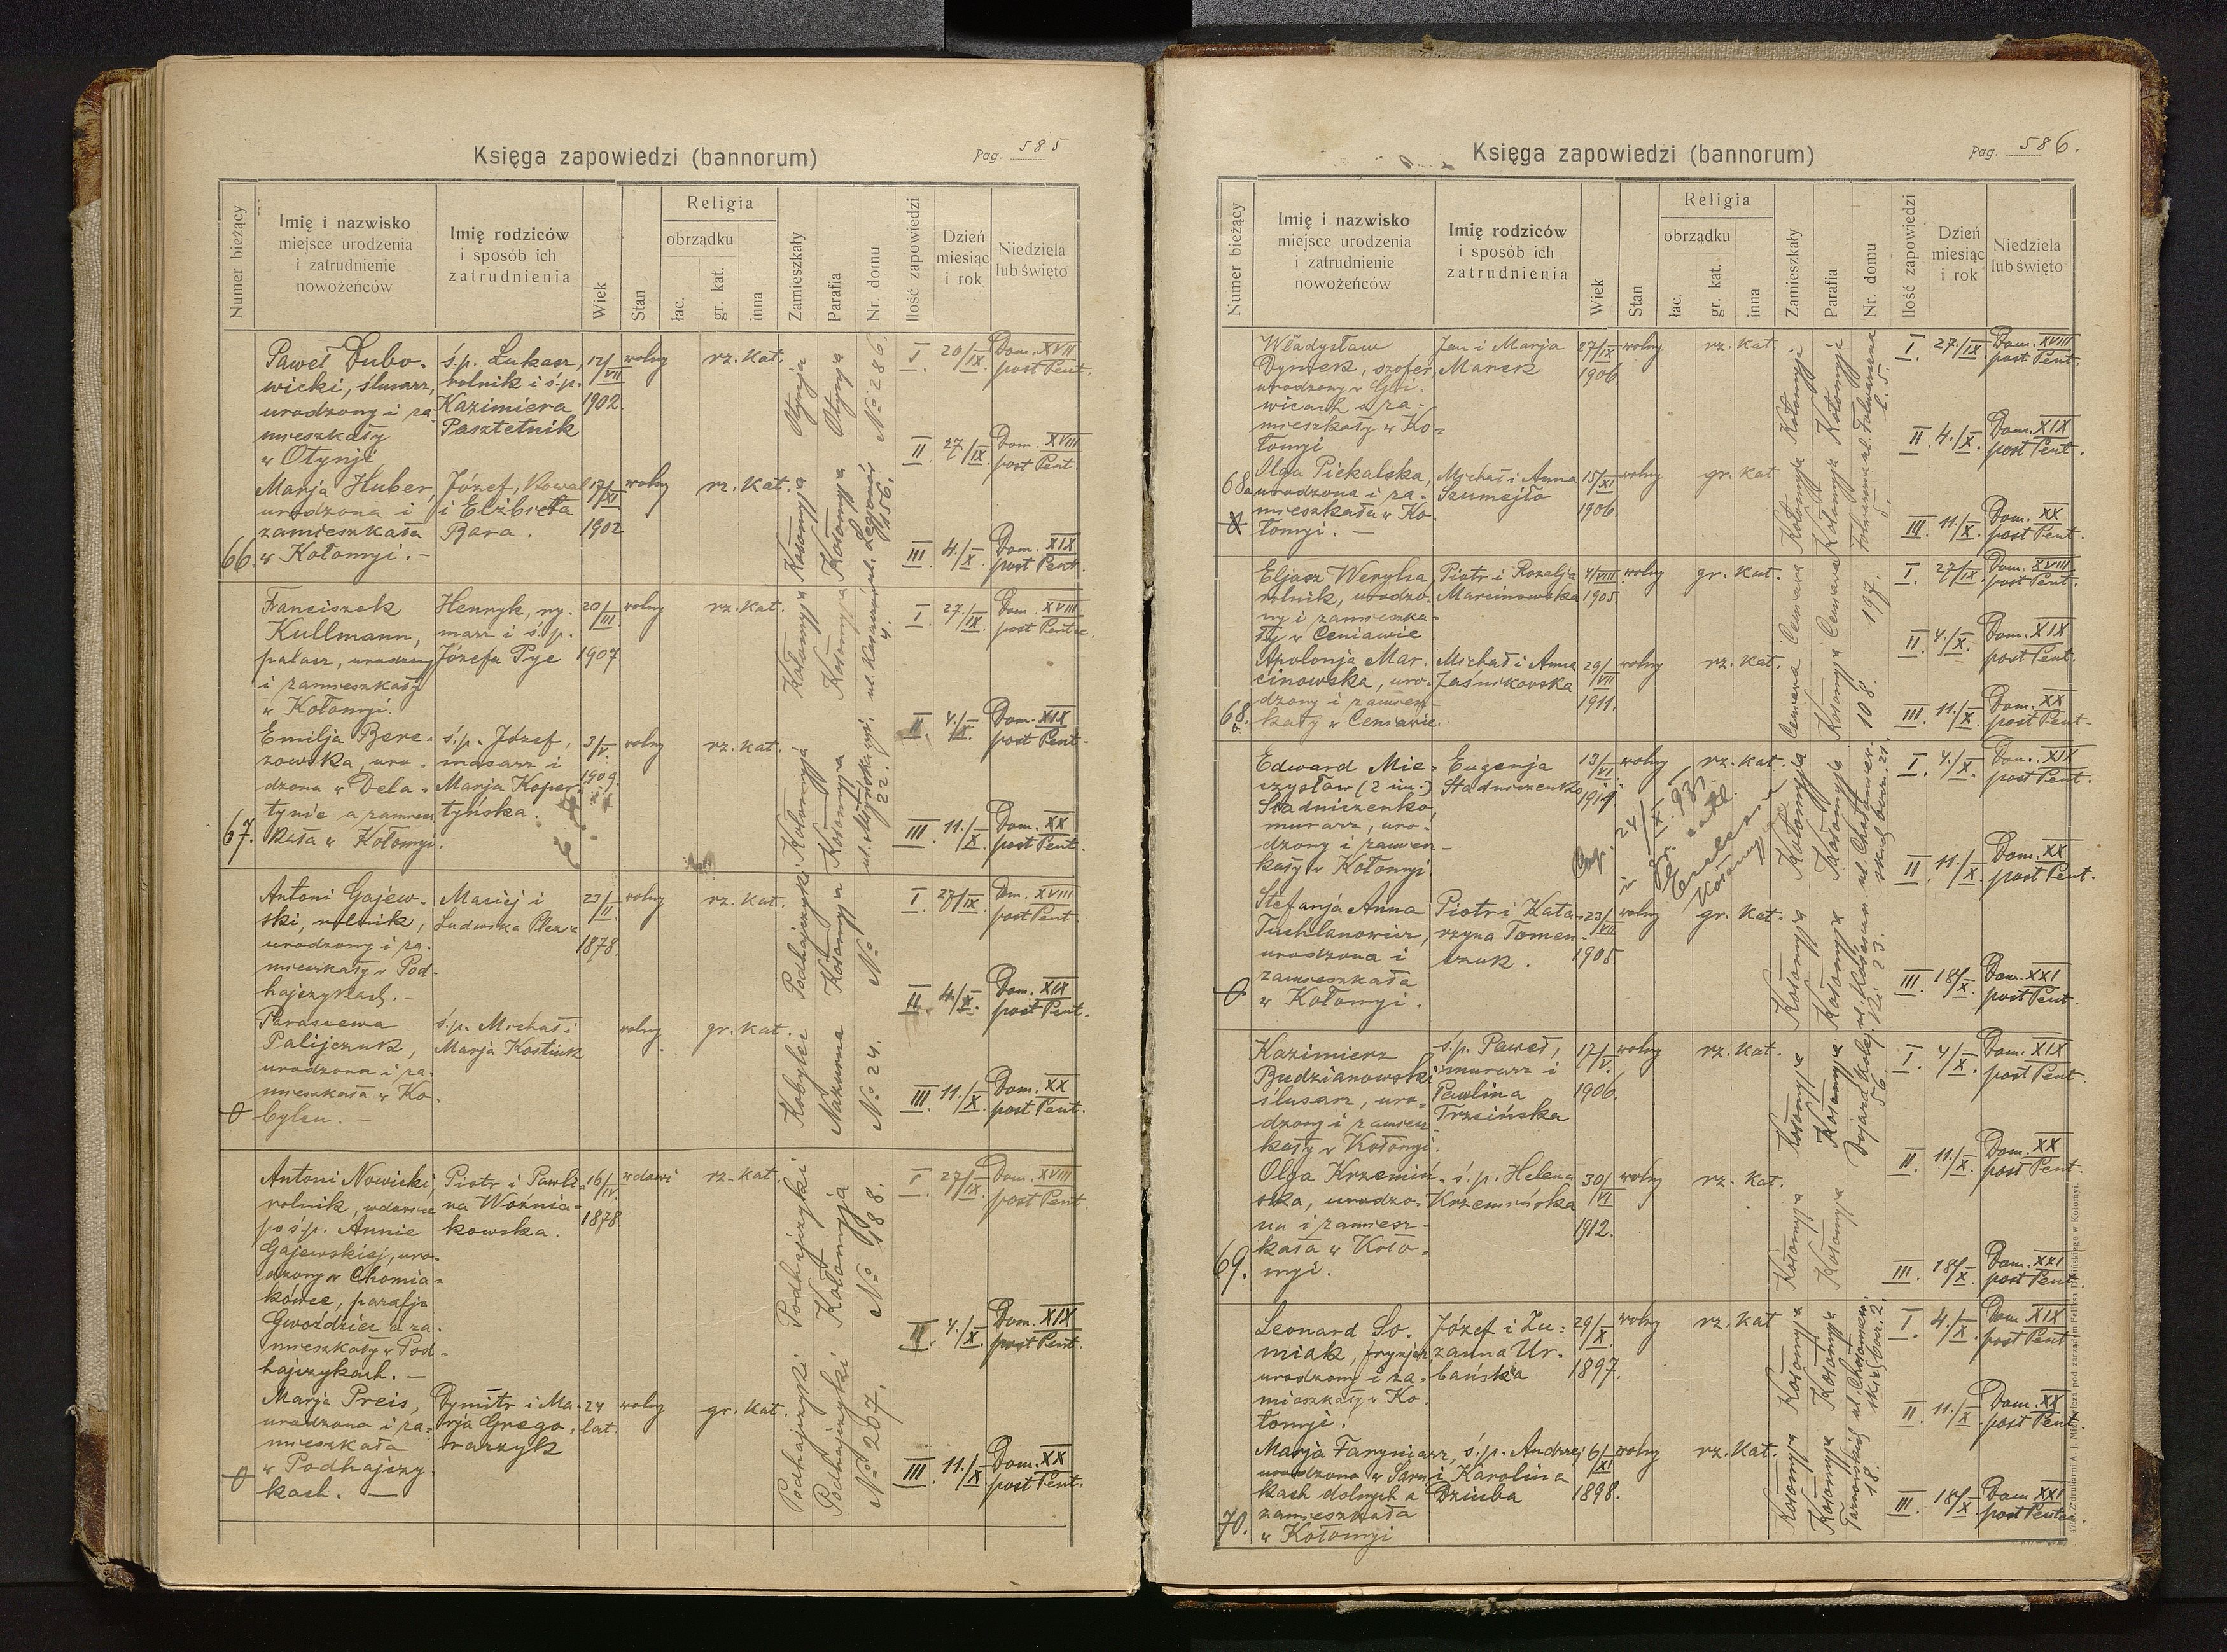 Księga zapowiedzi (bannorum)
Pag. 585
Numer bieżący
Imię i nazwisko
miejsce urodzenia
i zatrudnienie
nowożeńców
Imię rodziców
i sposób ich
zatrudnienia
Wiek
Stan
Religia
obrządku
łac.
gr. kat.
inna
Zamieszkały
Parafia
Nr. domu
Ilość zapowiedzi
Dzień
miesiąc
i rok
Niedziela
lub święto
66.
Paweł Dubo-
wicki, ślusarz,
urodzony i za
mieszkały
w Otynji
ś.p. Łukasz,
rolnik i ś.p.
Kazimiera
Pasztetnik
12/VII
1902.
wolny
rz. kat.
Otynja
Otynja
No 286.
Marja Huber,
urodzona i
zamieszkała
w Kołomyi. -
Józef, kowal
i Elżbieta
Bara.
17/XI
1902
wolny
rz. kat.
Kołomyja
Kołomyja
ul. Legionów
156.
I. 20/IX Dom. XVII
post Pent.
II. 27/IX Dom. XVIII
post Pent.
III. 4./X. Dom. XIX
post Pent.
67.
Franciszek
Kullmann,
palacz, urodzony
i zamieszkały
w Kołomyi.
Henryk, ry-
marz i ś.p.
Józefa Pyc
20/III
1907
wolny
rz. kat.
Kołomyja
Kołomyja
4.
Emilja Bere-
zowska, uro-
dzona w Dela-
tynie a zamiesz
kała w Kołomyi.
ś.p. Józef,
masarz i
Marja Koper-
tyńska.
3/V.
1909.
wolny
rz. kat.
Kołomyja
Kołomyja
22.
I. 27./IX. Dom. XVIII
post Pentec.
II. 4./X. Dom. XIX
post Pent.
III. 11./X. Dom. XX
post Pent.
Antoni Gajew-
ski, rolnik,
urodzony i za-
mieszkały w Pod-
hajczykach. -
Maciej i
Ludwika
23/II.
1878.
wolny
rz. kat.
Podhajczyki
Kołomyja
No
Paraszewa
Palijczuk,
urodzona i za-
mieszkała w Ko-
bylcu. -
ś.p. Michał i
Marja Kostiuk
wolny
gr. kat.
Kobylec
Nazurna
No 24.
I. 27/IX. Dom. XVIII
post Pent
II. 4/X. Dom. XIX
post Pent.
III. 11./X. Dom. XX
post Pent.
Antoni Nowicki,
rolnik, wdowiec
po ś.p. Annie
Gajewskiej, uro-
dzony w Chomia-
kówce, parafja
Gwoździec a za-
mieszkały w Pod-
hajczykach. -
Piotr i Pauli-
na Woźnia-
kowska.
16/IV.
1878.
rz. kat.
Podhajczyki
Kołomyja
No 188.
Marja Preis,
urodzona i za-
mieszkała
w Podhajczy-
kach. -
Dymitr i Ma-
rja Grego-
raszyk
24
lat.
wolny
gr. kat.
Podhajczyki
Podhajczyki
No 267.
I. 27/IX. Dom. XVIII
post Pent.
II. 4./X. Dom. XIX
post Pent.
III. 11./X Dom. XX
post Pent.
Księga zapowiedzi (bannorum)
Pag. 586.
Numer bieżący
Imię i nazwisko
miejsce urodzenia
i zatrudnienie
nowożeńców
Imię rodziców
i sposób ich
zatrudnienia
Wiek
Stan
Religia
obrządku
łac.
gr. kat.
inna
Zamieszkały
Parafia
Nr. domu
Ilość zapowiedzi
Dzień
miesiąc
i rok
Niedziela
lub święto
68a
Władysław
Dymek, szofer
urodzony w Gli-
wicach a za-
mieszkały w Ko-
łomyi
Jan i Marja
Marek
27/IX
1906
wolny
rz. kat.
Kołomyja
Kołomyja
ul. Folwarczna
l. 5.
Olga Piekalska,
urodzona i za-
mieszkała w Ko-
łomyi. -
Michał i Anna
Szumejło
15/XI
1906.
wolny
gr. kat
Kołomyja
Kołomyja
I. 27./IX. Dom. XVIII
post Pent.
II. 4./X. Dom. XIX
post Pent.
III. 11./X. Dom. XX
post Pent.
68.
Eljasz Weryha,
rolnik, urodzo-
ny i zamieszka-
ły w Ceniawie
Piotr i Rozalja
Marcinowska
4/VIII
1905.
wolny
gr. kat.
Ceniawa
Ceniawa
197.
Apolonja Mar-
cinowska, uro-
dzony i zamiesz-
kały w Ceniawie.
Michał i Anna
Jaśnikowska
29/VII
1911.
wolny
rz. kat.
Ceniawa
Kołomyja
108.
I. 27/IX. Dom. XVIII
post Pent.
II. 4./X. Dom. XIX
post Pent.
III. 11./X. Dom. XX
post Pent.
Edward Mie-
czysław (2 im.)
Stadniczenko,
murarz, uro-
dzony i zamiesz-
kały w Kołomyi.
Eugenja
Stadniczenko
13/VI.
wolny
rz. kat.
Kołomyja
Kołomyja
24/X. 931
w gr. catl.
Kołomyja
Stefanja Anna
Tuchlanowicz,
urodzona i
zamieszkała
w Kołomyi.
Piotr i Kata-
rzyna Tomen-
czuk.
23/VII
1905.
wolny
gr. kat.
Kołomyja
Kołomyja
23.
I. 4./X. Dom. XIX
post Pent.
II. 11./X. Dom. XX
post Pent.
III. 18/X. Dom. XXI
post Pent.
69.
Kazimierz
Budzianowski
ślusarz, uro-
dzony i zamiesz
kały w Kołomyi.
ś.p. Paweł,
murarz i
Pawlina
Trzcińska
17/V.
1906.
wolny
rz. kat.
Kołomyja
Kołomyja
56.
Olga Krzemiń-
ska, urodzo-
na i zamiesz-
kała w Koło-
myi.
ś.p. Helena
Krzemińska
30/VI
1912.
wolny
rz. kat.
Kołomyja
Kołomyja
I. 4/X. Dom. XIX
post Pent.
II. 11./X. Dom. XX
post Pent.
III. 18/X. Dom. XXI
post Pent.
70.
Leonard So-
miak, fryzjer,
urodzony i za-
mieszkały w Ko-
łomyi.
Józef i Zu-
zanna Ur-
bańska
29/X.
1897.
wolny
rz. kat
Kołomyja
Kołomyja
Marja Faryniarz,
urodzona w Sarn-
kach dolnych a
zamieszkała
w Kołomyi
ś.p. Andrzej
i Karolina
Dziuba
6/XI
1898.
wolny
rz. kat.
Kołomyja
Kołomyja
18.
I. 4./X. Dom. XIX
post Pent
II. 11./X. Dom. XX
post Pent.
III. 18/X. Dom. XXI
post Pentec.